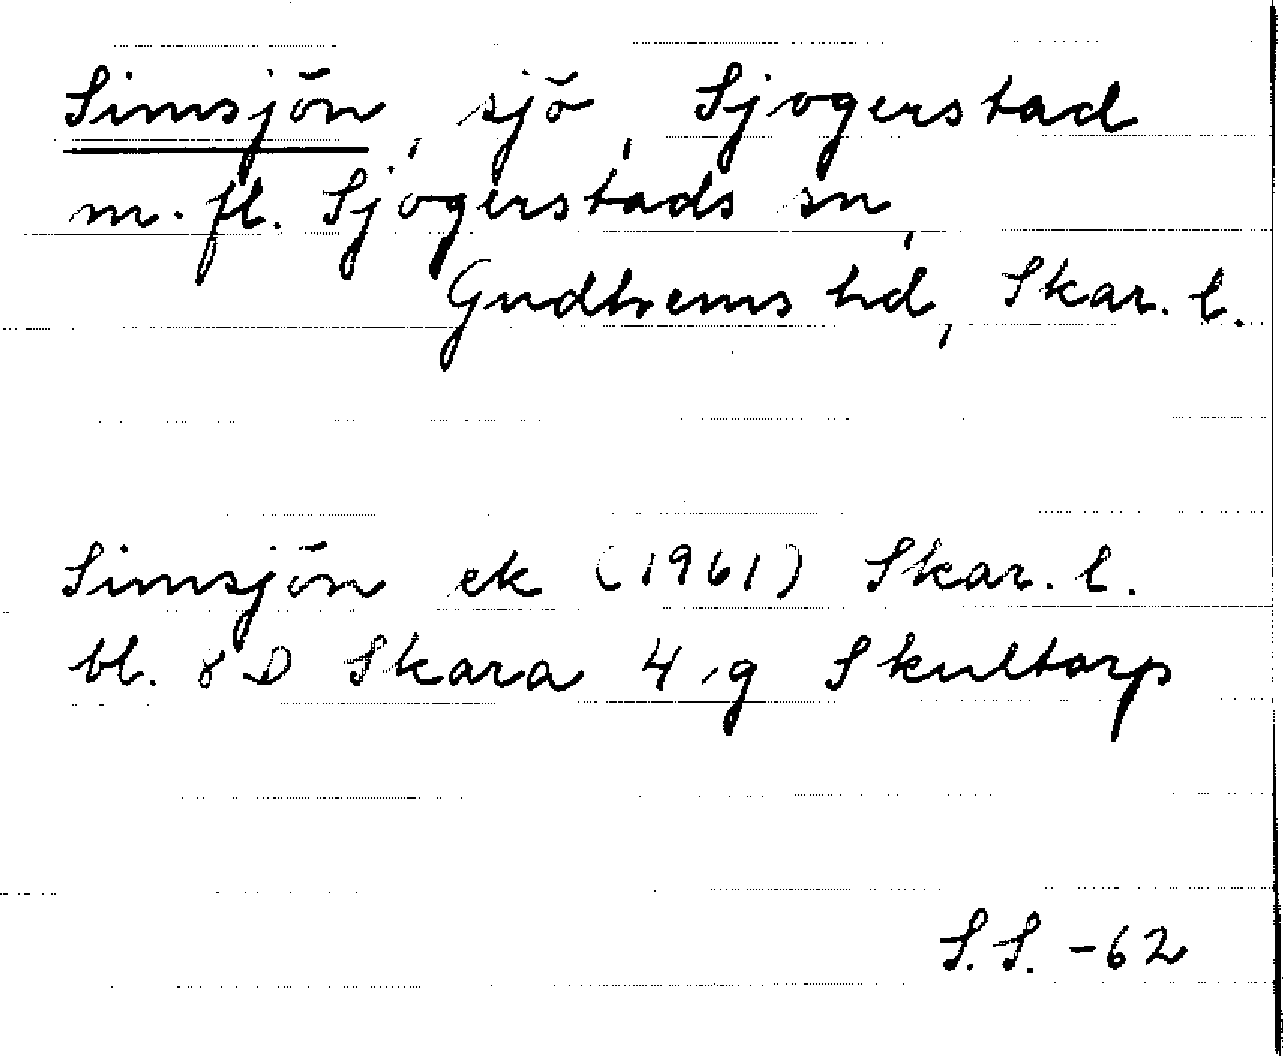 Simsjön, sjö, Sjogerstad
m. fl. Sjogerstads sn,
Gudhems hd, Skar. l.
Simsjön ek (1961) Skar. l.
bl. 8 D Skara 4 g Skultorp
S.S. -62